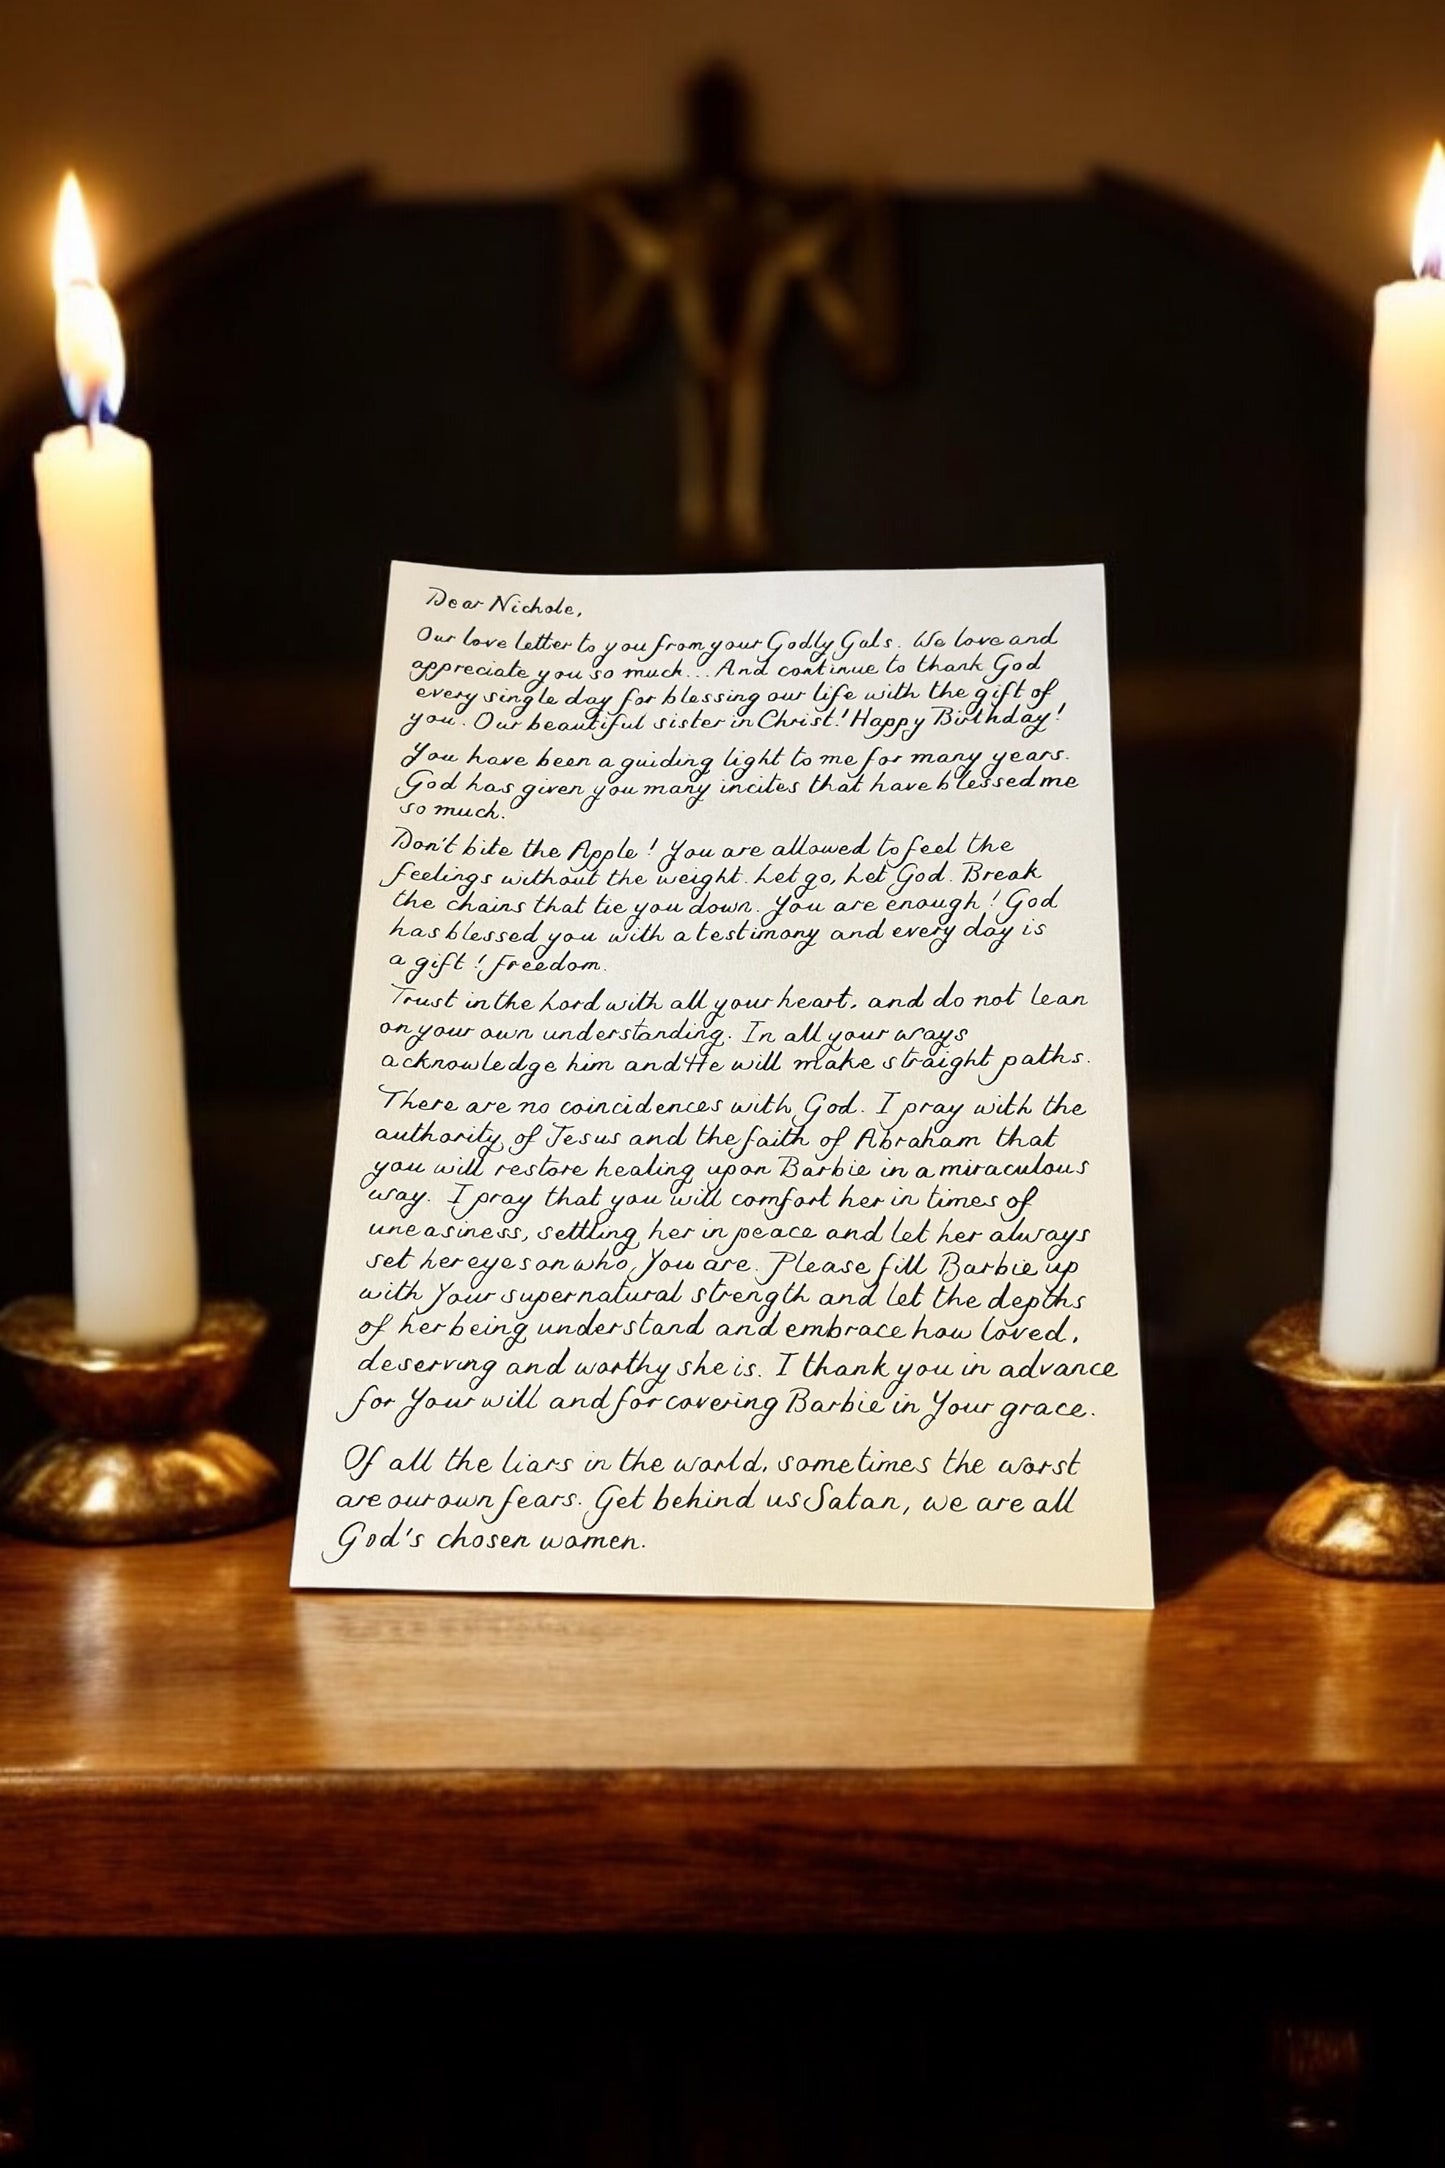 Dear Nichole,
Our love letter to you from your Godly Gals. We love and
appreciate you so much... And continue to thank God
every single day for blessing our life with the gift of
you. Our beautiful sister in Christ! Happy Birthday!
You have been a guiding light to me for many years.
God has given you many incites that have blessed me
so much.
Don't bite the Apple! You are allowed to feel the
feelings without the weight. Let go, Let God. Break
the chains that tie you down. You are enough! God
has blessed you with a testimony and every day is
a gift! Freedom.
Trust in the Lord with all your heart, and do not lean
on your own understanding. In all your ways
acknowledge him and He will make straight paths.
There are no coincidences with God. I pray with the
authority of Jesus and the faith of Abraham that
you will restore healing upon Barbie in a miraculous
way. I pray that you will comfort her in times of
uneasiness, settling her in peace and let her always
set her eyes on who You are. Please fill Barbie up
with Your supernatural strength and let the depths
of her being understand and embrace how loved,
deserving and worthy she is. I thank you in advance
for Your will and for covering Barbie in Your grace.
Of all the liars in the world, sometimes the worst
are our own fears. Get behind us Satan, we are all
God's chosen women.